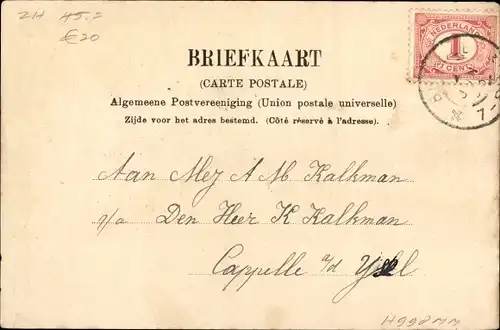 ZH 45.2
€20
NEDERLAND
1
CENT
BRIEFKAART
(CARTE POSTALE)
Algemeene Postvereeniging (Union postale universelle)
Zijde voor het adres bestemd. (Côté réservé à l'adresse).
Aan Mej A M Kalkman
p/a Den Heer K Kalkman
Cappelle a/d Ysel
H998MM